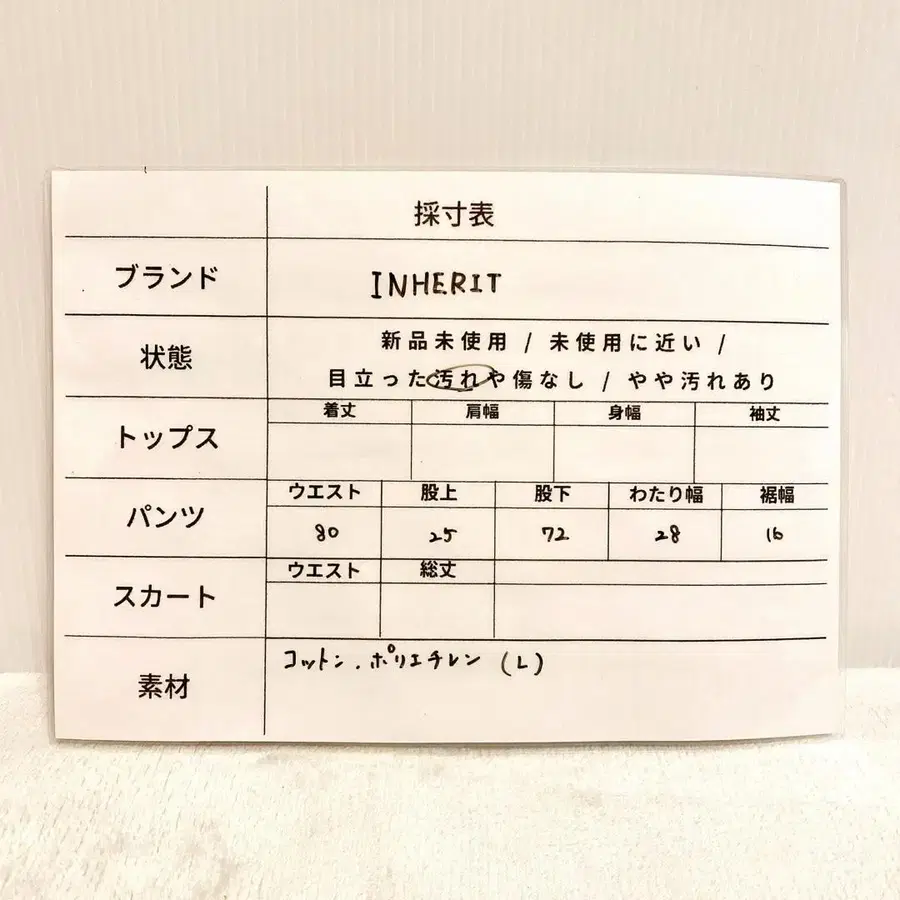 採寸表
ブランド
INHERIT
状態
新品未使用 / 未使用に近い /
目立った汚れや傷なし / やや汚れあり
トップス
着丈 肩幅 身幅 袖丈
パンツ
ウエスト 股上 股下 わたり幅 裾幅
80 25 72 28 16
スカート
ウエスト 総丈
素材
コットン.ポリエチレン (L)